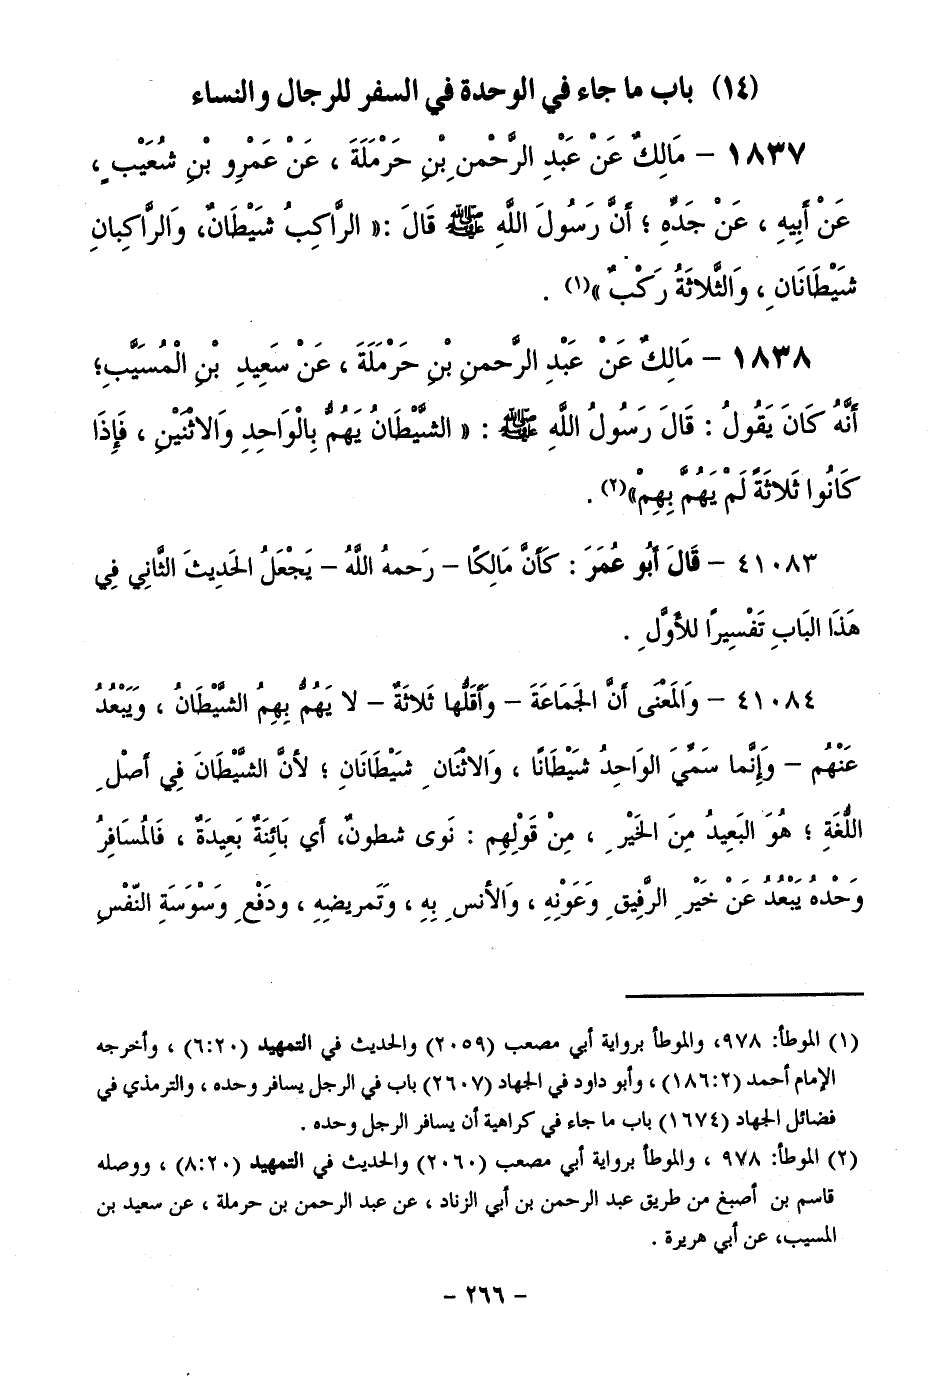 (١٤) باب ما جاء في الوحدة في السفر للرجال والنساء
١٨٣٧ – مَالِكٌ عَنْ عَبْدِ الرَّحْمنِ بْنِ حَرْمَلَةَ ، عَنْ عَمْرِو بْنِ شُعَيْبٍ ،
عَنْ أَبِيهِ ، عَنْ جَدِّهِ ؛ أَنَّ رَسُولَ اللَّهِ ﷺ قَالَ :« الرَّاكِبُ شَيْطَانٌ، وَالرَّاكِبانِ
شَيْطَانَانِ ، وَالثَّلاثَةُ رَكْبٌ »(١) .
١٨٣٨ – مَالِكٌ عَنْ عَبْدِ الرَّحمنِ بْنِ حَرْمَلَةَ ، عَنْ سَعِيدِ بْنِ الْمُسَيَّبِ؛
أَنَّهُ كَانَ يَقُولُ : قَالَ رَسُولُ اللَّهِ ﷺ : « الشَّيْطَانُ يَهُمُّ بِالْوَاحِدِ وَالاثْنَيْنِ ، فَإِذَا
كَانُوا ثَلاثَةً لَمْ يَهُمَّ بِهِمْ»(٢) .
٤١٠٨٣ – قَالَ أَبُو عُمَرَ : كَأَنَّ مَالِكًا – رَحمهُ اللَّهُ – يَجْعَلُ الحَدِيثَ الثَّانِي فِي
هَذَا البَابِ تَفْسِيرًا للأوَّلِ .
٤١٠٨٤ – وَالمَعْنَى أَنَّ الجَمَاعَةَ – وَأَقَلُّها ثَلاثَةٌ – لا يَهُمُّ بِهِمُ الشَّيْطَانُ ، وَيَبْعُدُ
عَنْهُم – وَإِنَّما سَمِّيَ الوَاحِدُ شَيْطَانًا ، وَالاثْنَانِ شَيْطَانَانِ ؛ لأنَّ الشَّيْطَانَ فِي أصْلِ
اللُّغَةِ ؛ هُوَ البَعِيدُ مِنَ الخَيْرِ ، مِنْ قَوْلِهِم : نَوى شطونٌ، أي بَائِنَةٌ بَعِيدَةٌ ، فَالمُسَافِرُ
وَحْدهُ يَبْعُدُ عَنْ خَيْرِ الرَّفِيقِ وَعَوْنِهِ ، وَالأنسِ بِهِ ، وَتَمريضِهِ ، ودَفْعِ وَسْوَسَةِ النَّفْسِ
(١) الموطأ: ٩٧٨، والموطأ برواية أبي مصعب (٢٠٥٩) والحديث في التمهيد (٦:٢٠) ، وأخرجه
الإمام أحمد (١٨٦:٢) ، وأبو داود في الجهاد (٢٦٠٧) باب في الرجل يسافر وحده ، والترمذي في
فضائل الجهاد (١٦٧٤) باب ما جاء في كراهية أن يسافر الرجل وحده .
(٢) الموطأ: ٩٧٨ ، والموطأ برواية أبي مصعب (٢٠٦٠) والحديث في التمهيد (٨:٢٠) ، ووصله
قاسم بن أصبغ من طريق عبد الرحمن بن أبي الزناد ، عن عبد الرحمن بن حرملة ، عن سعيد بن
المسيب، عن أبي هريرة .
– ٢٦٦ –